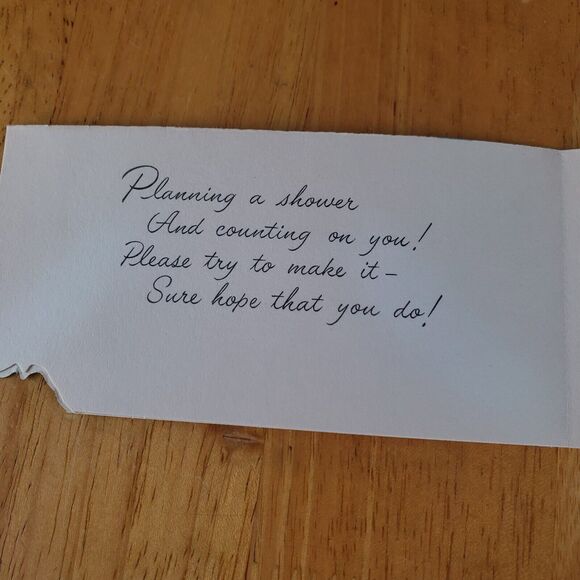 Planning a shower
And counting on you!
Please try to make it –
Sure hope that you do!